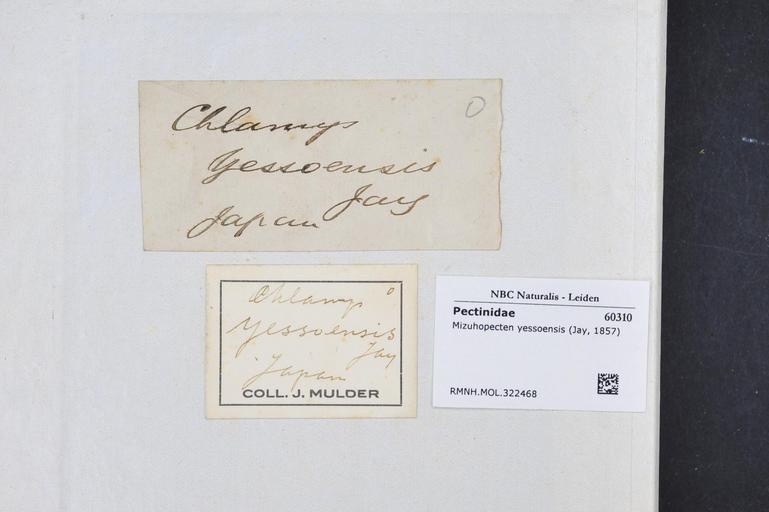 Chlamys O
yessoensis
Jay
Japan
Chlamys o
yessoensis
Jay
Japan
COLL. J. MULDER
NBC Naturalis - Leiden
Pectinidae 60310
Mizuhopecten yessoensis (Jay, 1857)
RMNH.MOL.322468